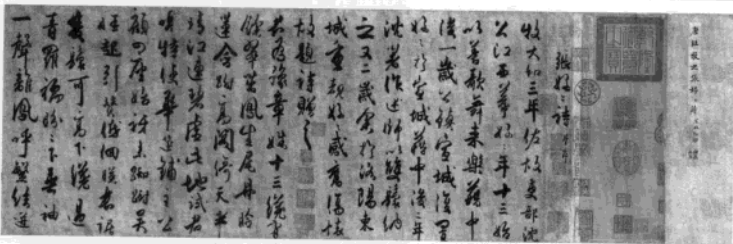 唐杜牧之張好好詩
張好好詩并序
牧大和三年佐故吏部沈
公江西幕好好年十三始
以善歌舞來樂籍中
後一歲公鎮宣城復置
好好於宣城籍中後二年
沈著作述師以雙鬟納
之又二歲余於洛陽東
城重覩好好感舊傷懷
故題詩贈之
君為豫章姝十三纔有
餘翠茁鳳生尾丹臉
蓮含跗高閣倚天半
晴江連碧虛此地試君
唱特使華筵鋪主公
顧四座始訝來踟躕吳
娃起引贊低佪暎長裾
雙鬟可高下纔過
青羅襦盼盼下垂袖
一聲離鳳呼繁弦迸